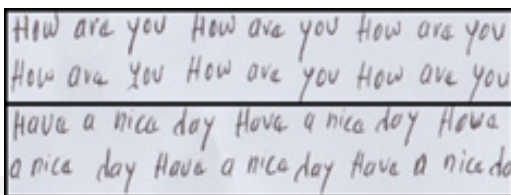 How are you How are you How are you
How are you How are you How are you
Have a nice day Have a nice day Have
a nice day Have a nice day Have a nice da